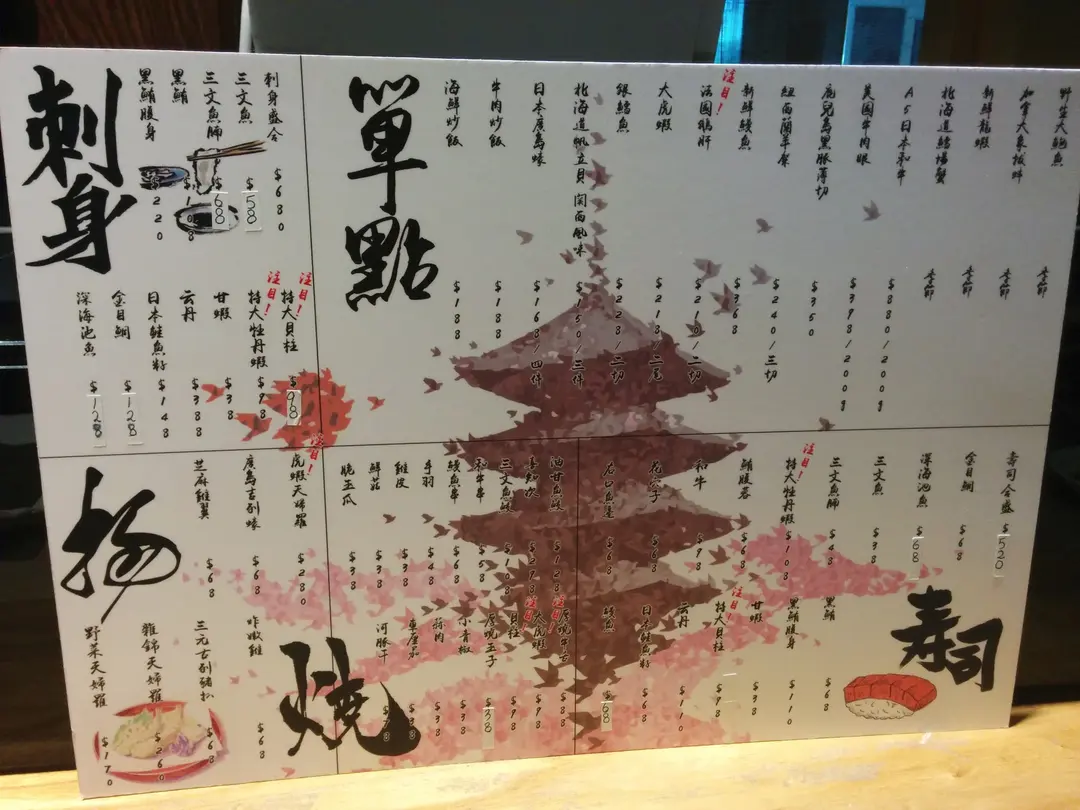 刺身
刺身盛合 $680
三文魚 $58
三文魚腩 $68
黑鮪 $108
黑鮪腹身 $220
注目!
特大貝柱 $98
注目!
特大牡丹蝦 $98
甘蝦 $38
云丹 $388
日本鮭魚籽 $148
金目鯛 $128
深海池魚 $128
單點
野生大鮑魚 季節
加拿大象拔蚌 季節
新鮮龍蝦 季節
北海道鱈場蟹 季節
A5日本和牛 $880/200g
美國牛肉眼 $398/200g
鹿兒島黑豚薄切 $350
紐西蘭羊架 $240/三切
注目!
新鮮鰻魚 $368
法國鵝肝 $210/二切
大虎蝦 $218/二尾
銀鱈魚 $228/二切
北海道帆立貝 関西風味 $150/三件
日本廣島蠔 $168/四件
牛肉炒飯 $188
海鮮炒飯 $188
揚
注目!
虎蝦天婦羅 $280
廣島吉列蠔 $68
芝麻雞翼 $68
咋嫩雞 $68
三元吉列豬扒 $68
雜錦天婦羅 $260
野菜天婦羅 $170
燒
油甘魚鮫 $128
喜知次 $298
三文魚鮫 $108
和牛串 $58
鰻魚串 $68
手羽 $48
雞皮 $38
鮮菇 $38
脆玉瓜 $38
注目!
厚燒牛舌 $88
注目!
大虎蝦 $98
貝柱 $98
厚燒玉子 $38
小青椒 $38
鷄肉 $38
河豚干
壽司
壽司合盛 $520
金目鯛 $68
深海池魚 $68
三文魚 $38
三文魚腩 $48
注目!
特大牡丹蝦 $108
鮪腹蓉 $68
和牛 $98
花穴子 $68
左口魚邊 $68
黑鮪 $68
黑鮪腹身 $110
甘蝦 $38
注目!
特大貝柱 $98
云丹 $110
日本鮭魚籽 $68
鰻魚 $68